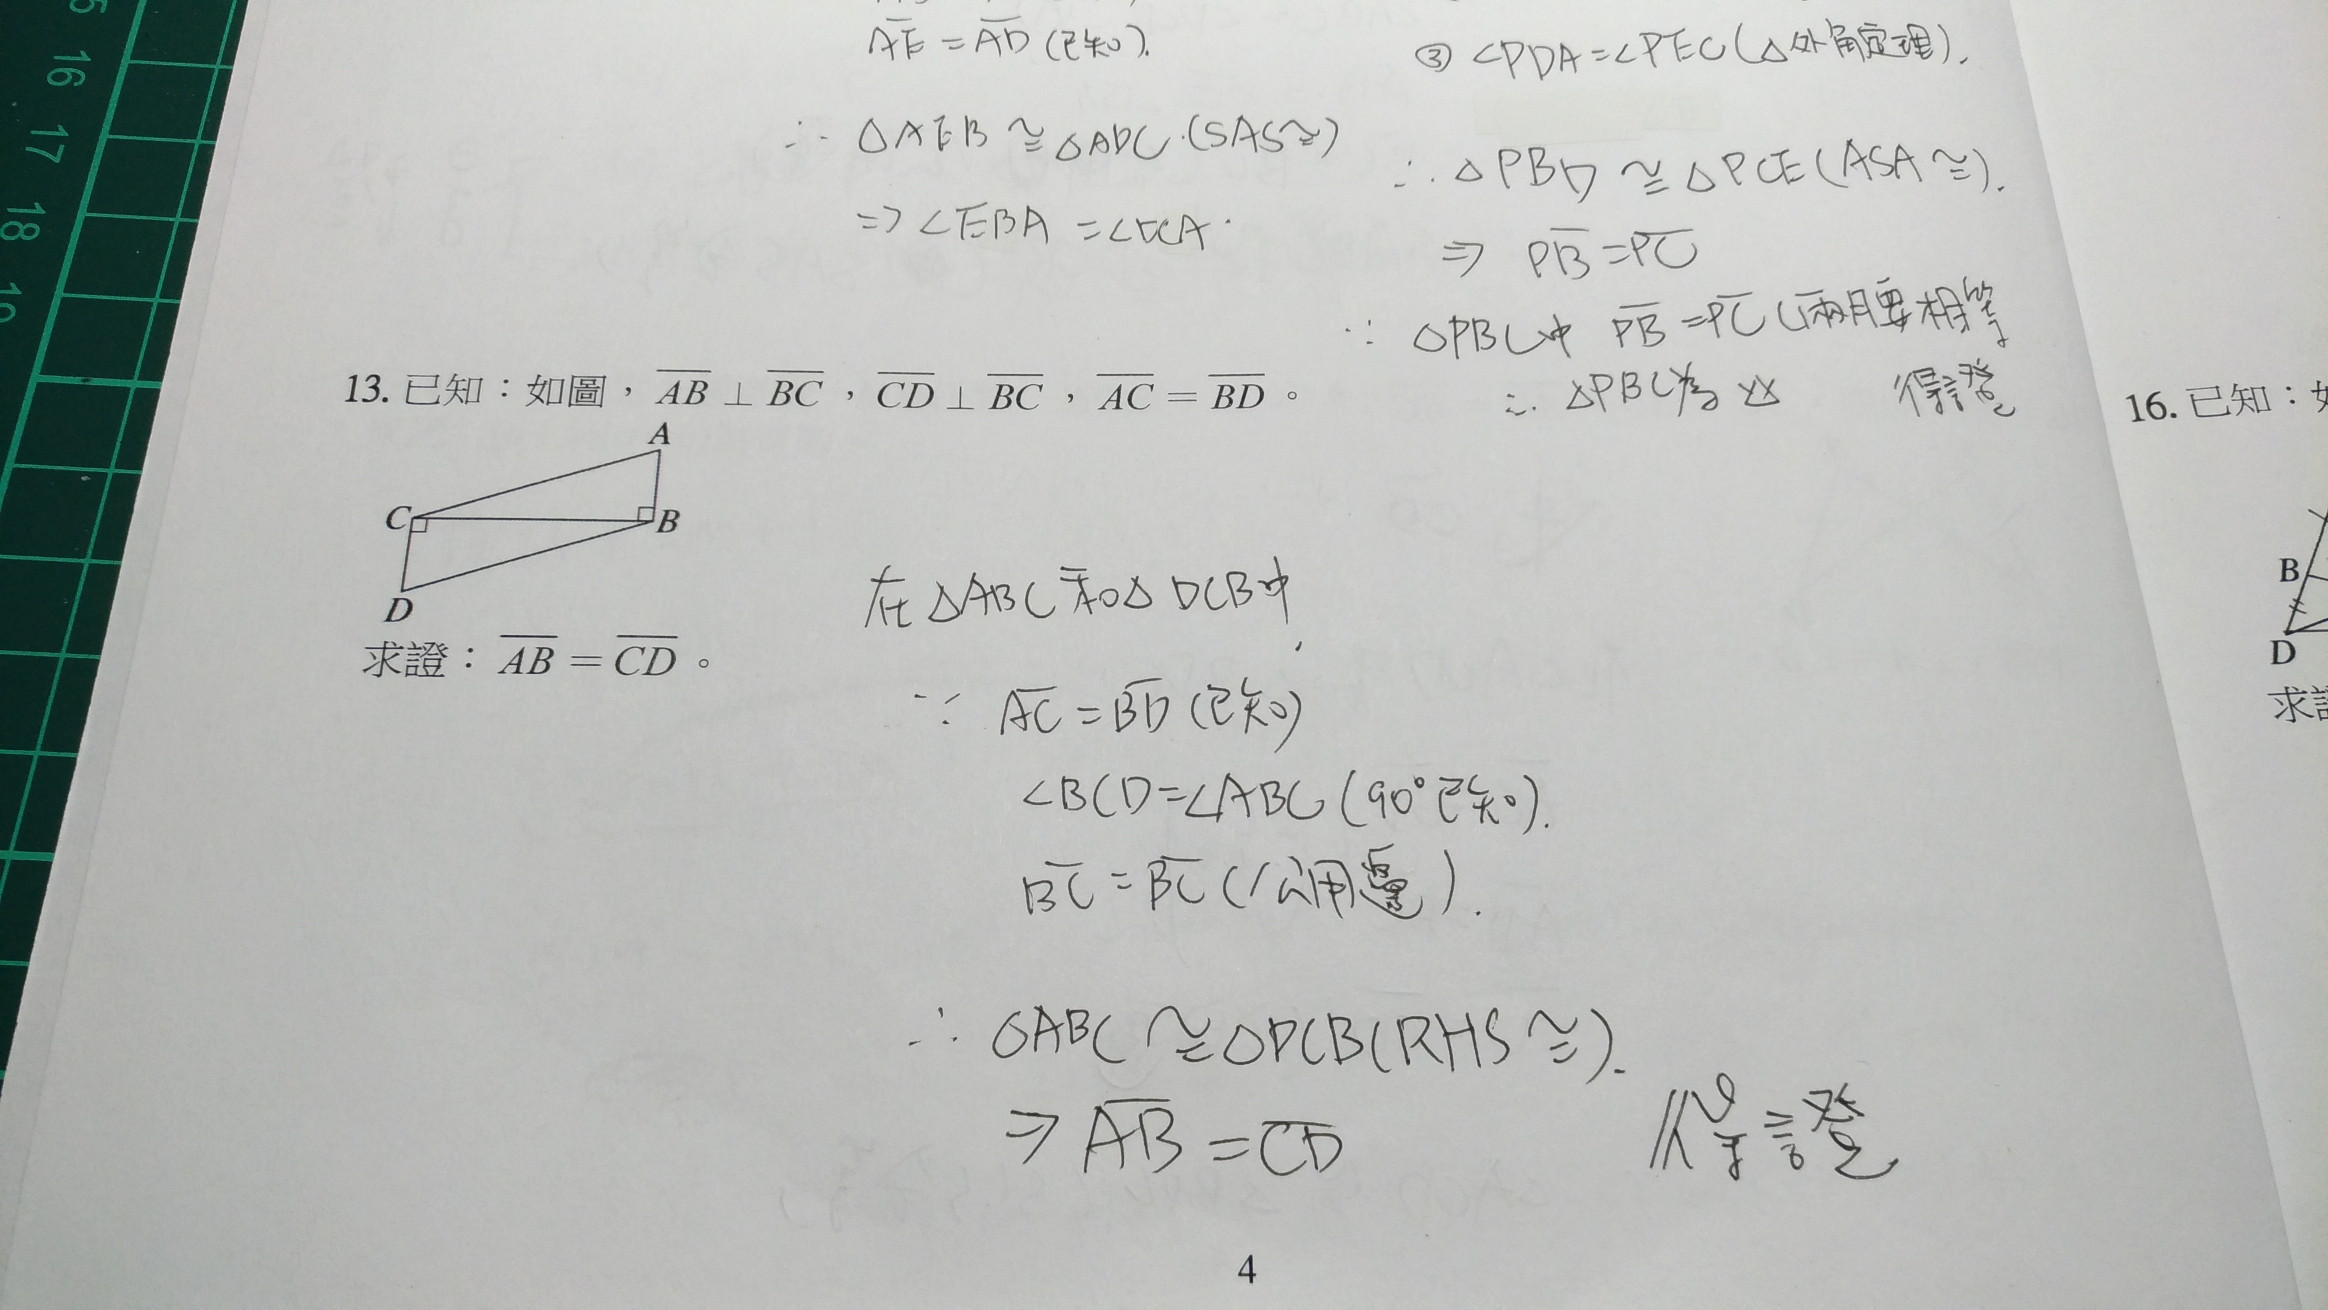 15
16
17
18
19
AE = AD (已知).
∴ △AEB ≅ △ADC (SAS≅)
⇒ ∠EBA = ∠DCA
③ ∠PDA = ∠PEC (△外角定理).
∴ △PBD ≅ △PCE (ASA≅).
⇒ PB = PC
∵ △PBC中 PB = PC (兩腰相等
∴ △PBC為 得證
13. 已知：如圖，AB⊥BC，CD⊥BC，AC＝BD。
A
C
B
D
求證：AB＝CD。
在△ABC和△DCB中,
∵ AC = BD (已知)
∠BCD = ∠ABC (90°已知).
BC = BC (公用邊).
∴ △ABC ≅ △DCB (RHS≅).
⇒ AB = CD 得證
4
16. 已知：如
B
D
求證